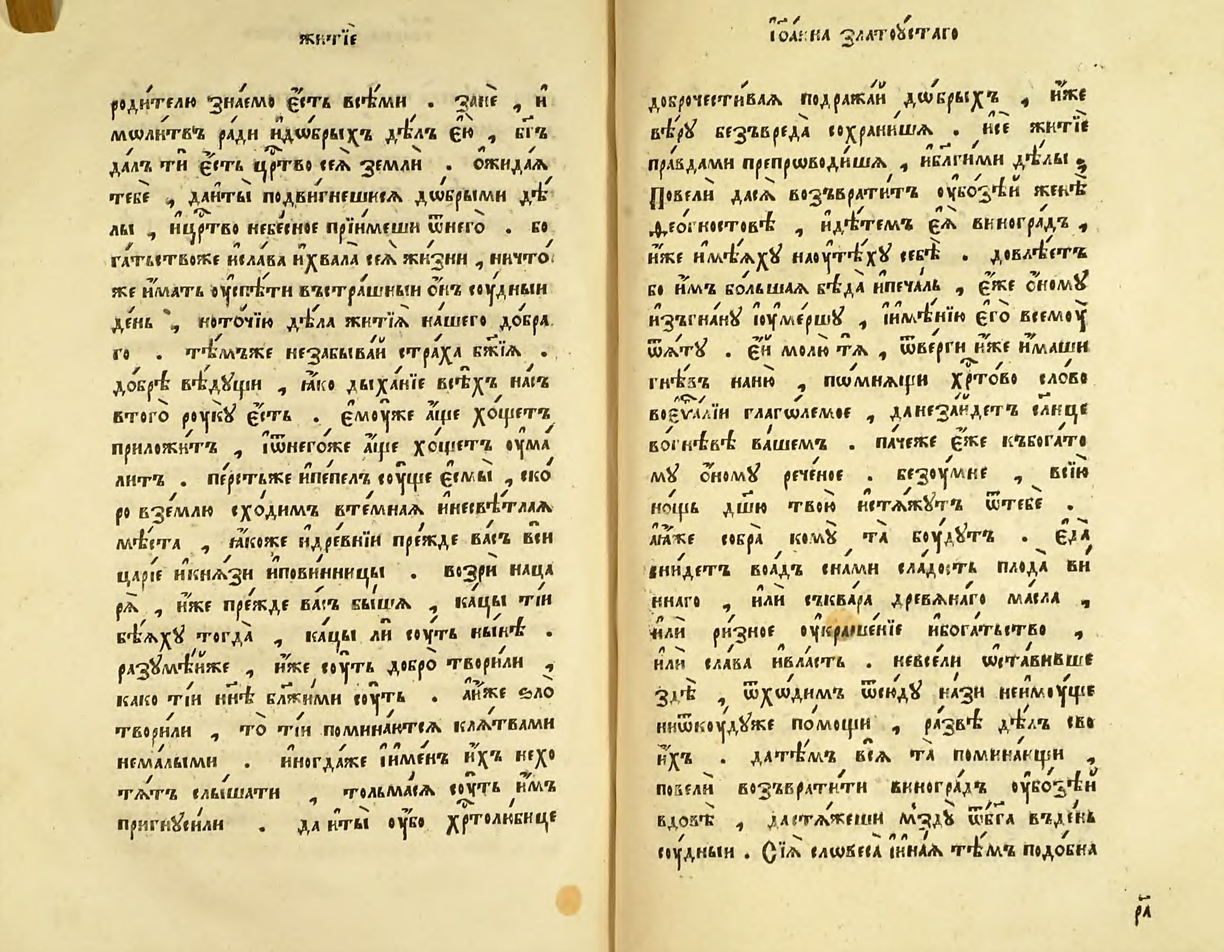 житїѐ
роди́телю зна́емо є҆́сть всѣ́ми . занѐ , и҆
мѡли́твъ ра́ди и҆дѡ́брыхъ дѣ́лъ є҆ю̀ , бг҃ъ
да́лъ ти є҆́сть цр҇тво сеѧ̀ землѝ . ѻ҆жида́ѧ
тебѐ , да и҆ты̀ подви́гнешисѧ дѡ́брыми дѣ́
лы , и҆цр҇тво небе́сное прїи́меши ѿнегѡ̀ . бо
га́тьствоже и҆сла́ва и҆хвала̀ сеѧ̀ жи́зни , ничто́
же и҆́мать оу҆спѣ́ти въстра́шныи ѻ҆́нъ соу́дныи
де́нь , но то́чїю дѣ́ла житїѧ̀ на́шего до́бра
го . тѣ́мъже незабыва́й стра́ха бж҃їѧ .
до́брѣ вѣ́дꙋщи , ꙗ҆́ко дыха́нїе всѣ́хъ на́съ
втого̀ роу́кꙋ є҆́сть . є҆моу́же а҆́ще хо́щетъ
приложи́тъ , і҆ѿнего́же а҆́ще хо́щетъ оу҆ма́
литъ . пе́рстьже и҆пе́пелъ соу́ще є҆смы̀ , ско́
ро взе́млю схо́димъ вте́мнаѧ и҆несвѣ́тлаѧ
мѣ́ста , ꙗ҆́коже и҆дре́внїи пре́жде ва́съ вси
ца́рїе и҆кнѧ́зи и҆пови́нницы . возрѝ наца
рѧ̀ , и҆́же пре́жде ва́съ бы́шѧ , ка́цы тїи
бѣ́ѧхꙋ тогда̀ , ка́цы ли соу́ть ны́нѣ .
разꙋмѣ́йже , и҆́же соу́ть добро̀ твори́ли ,
како тїи нн҃ѣ бл҃же́ними соу́ть . а҆и҆́же ѕло̀
твори́ли , то̀ тїи помина́ютсѧ клѧ́твами
нема́лыми . и҆ногда́же і҆и҆ме́нъ и҆́хъ нехо
тѧ́тъ слы́шати , тольма́сѧ соу́ть и҆́мъ
пригнꙋси́ли . да и҆ты̀ оу҆̀бо хр҇толю́бице
і҆ѡа́нна златоꙋ́стаго
доброчести́ваѧ подража́й дѡ́брыхъ , и҆́же
вѣ́рꙋ безъвреда̀ сохрани́шѧ . и҆сѐ житїѐ
пра́вдами препрѡводи́шѧ , и҆бл҃ги́ми дѣ́лы ,
Повелѝ дасѧ̀ возъврати́тъ оу҆бо́зѣй женѣ̀
ѳ҆ео́гностовѣ , и҆дѣ́темъ є҆ѧ̀ виногра́дъ ,
и҆́же и҆мѣ́ѧхꙋ наоу҆тѣ́хꙋ себѣ̀ . довлѣ́етъ
бо и҆́мъ бо́льшаѧ бѣ́да и҆печа́ль , є҆́же ѻ҆́номꙋ
и҆зъгна́нꙋ і҆оу҆ме́ршꙋ , і҆и҆мѣ́нїю є҆гѡ̀ всемоу̀
ѿѧ́тꙋ . є҆́й молю̀ тѧ̀ , ѿве́рги и҆́же и҆́маши
гнѣ́въ наню̀ , пѡмнѧ́щи хр҇то́во сло́во
воє҆ѵⷢ҇а́лїи глаго́лемое , данеза́йдетъ сл҃нце
во́гнѣвѣ ва́шемъ . па́чеже є҆́же къбога́то
мꙋ ѻ҆́номꙋ рече́ное . безоу́мне , всїю̀
но́щь дш҃ю твою̀ и҆стѧ́жꙋтъ ѿтебѐ .
а҆ꙗ҆́же собра̀ комꙋ̀ та̀ боу́дꙋтъ . є҆да̀
сни́детъ воа́дъ сна́ми сла́дость плода̀ ви
ннаго , и҆лѝ съква́ра древѧ́наго ма́сла ,
и҆лѝ ри́зное оу҆краше́нїе и҆бога́тьство ,
и҆лѝ сла́ва и҆вла́сть . невсе́ли ѡ҆ста́вивше
здѣ̀ , ѿхо́димъ ѿсю́дꙋ на́зи неи҆моу́ще
ниѿкоу́дꙋже по́мощи , ра́звѣ дѣ́лъ сво
и҆́хъ . датѣ́мъ всѧ̀ та̀ помина́ющи ,
повелѝ возъврати́ти виногра́дъ оу҆бо́зѣй
вдовѣ̀ , дастѧ́жеши мздꙋ̀ ѿбг҃а въде́нь
соу́дныи . Сїѧ̀ словеса̀ и҆и҆на́ѧ тѣ́мъ подо́бна
р҃а